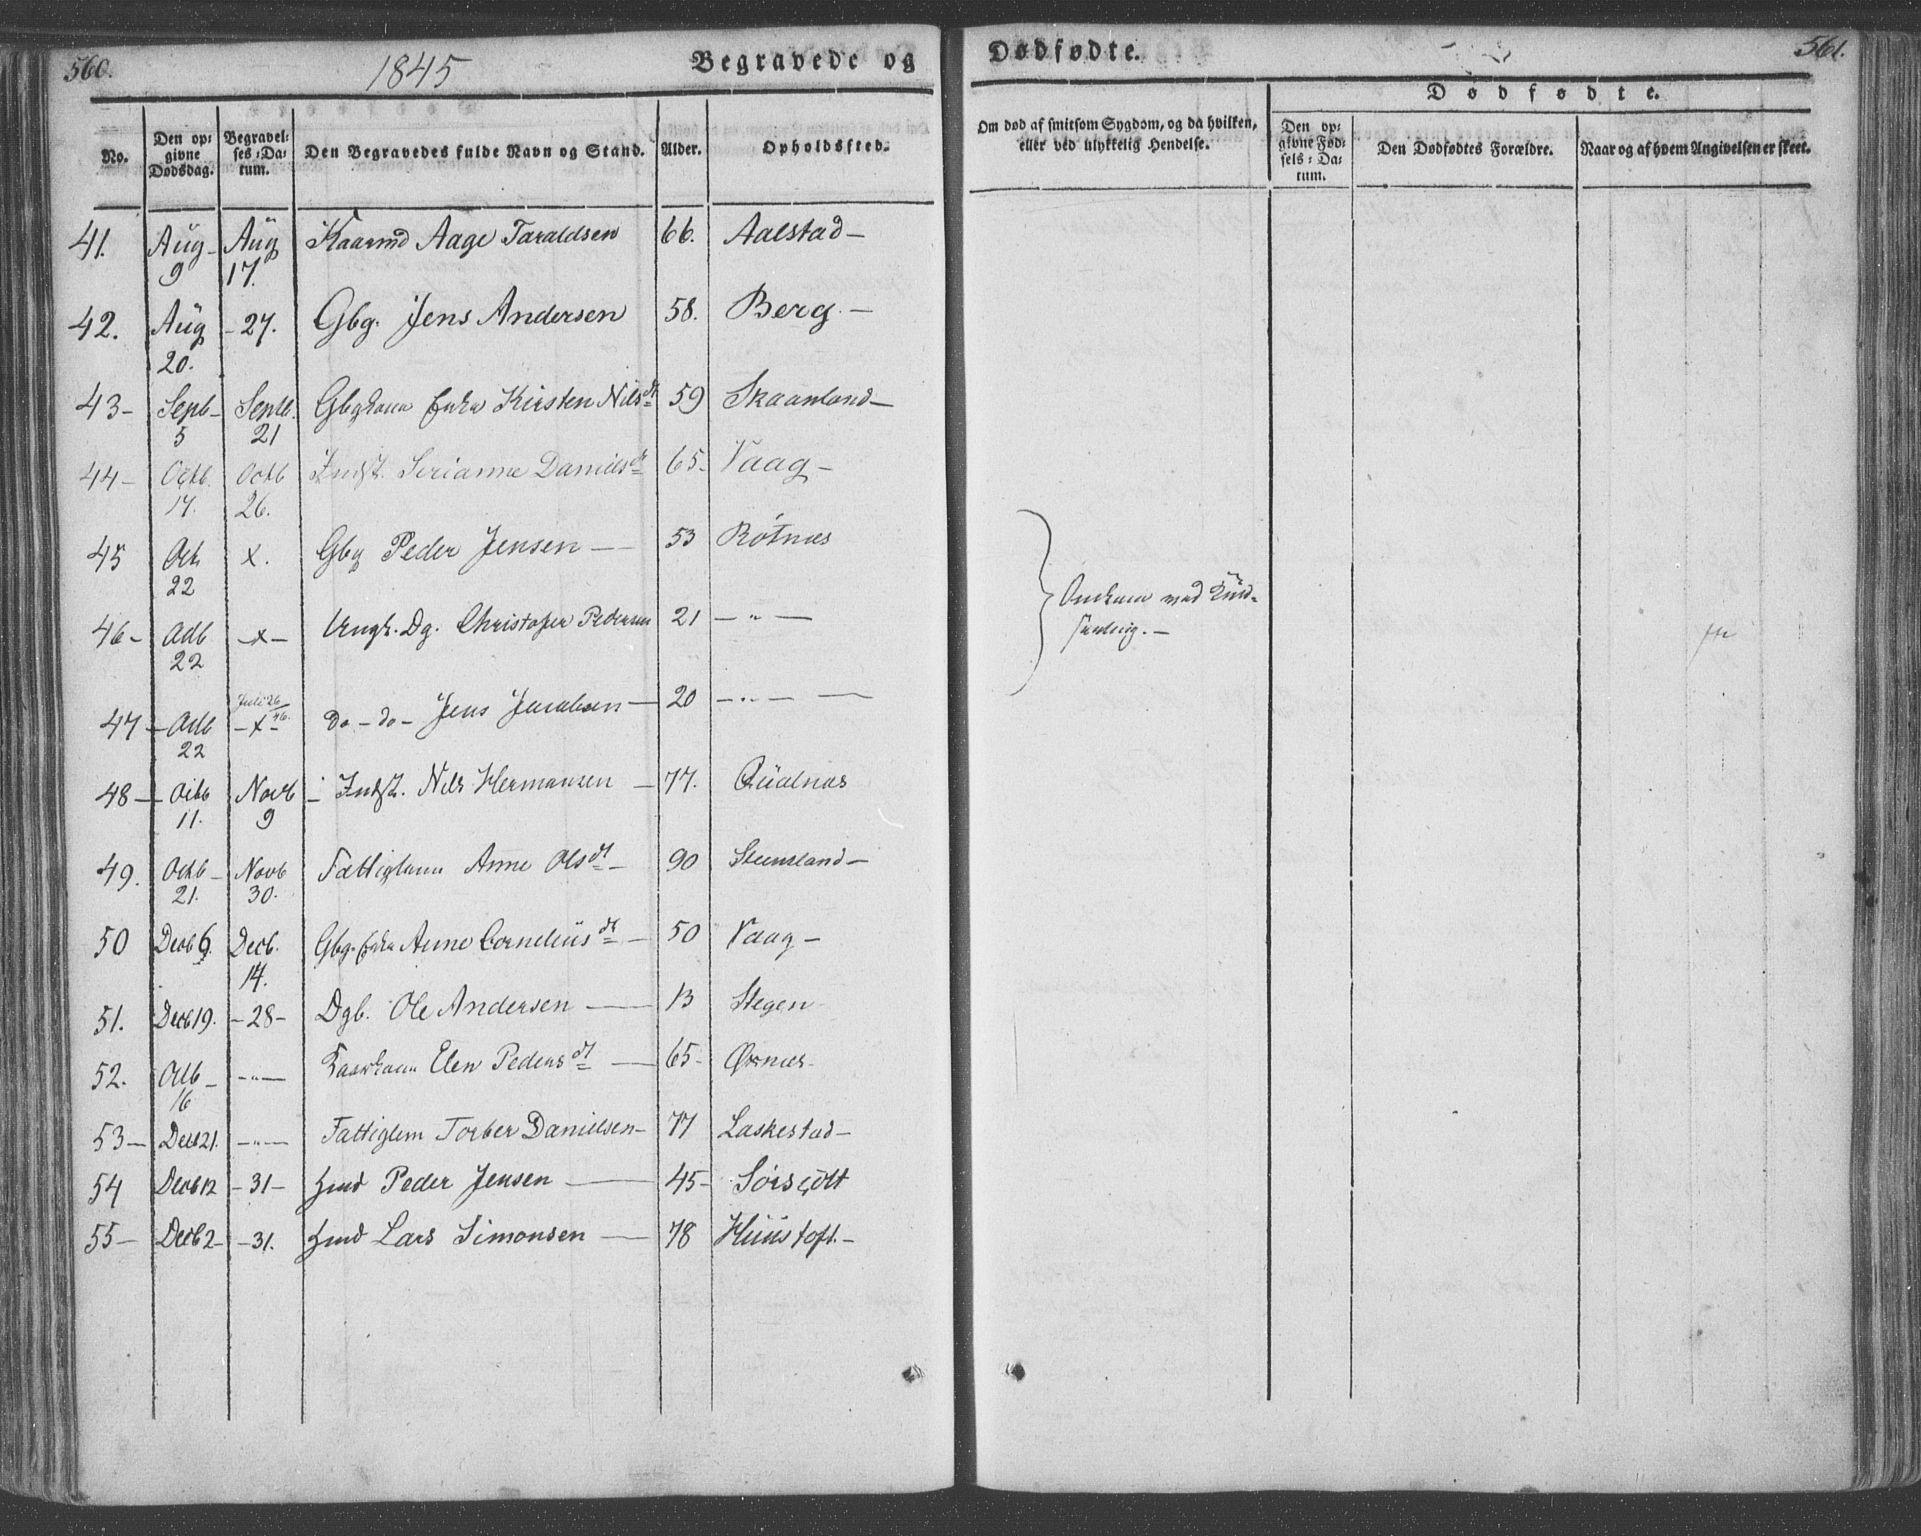 560.
1845
Begravede og
Dødfødte.
561.
No.
Den opgivne Dødsdag.
Begravelses-Datum.
Den Begravedes fulde Navn og Stand.
Alder.
Opholdssted.
Om død af smitsom Sygdom, og da hvilken, eller ved ulykkelig Hendelse.
Dødfødte.
Den opgivne Fødsels-Datum.
Den Dødfødtes Forældre.
Naar og af hvem Angivelsen er skeet.
41. Aug- 9 Aug 17. Kaarmd Aage Taraldsen 66. Aalstad-
42. Aug 20. - 27. Gbg. Jens Andersen 58. Berg. -
43- Septb- 5 Septb. 21 Gbgkone Enke Kirsten Nilsdt 59 Skaanland-
44- Octb. 17. Octb 26. Indst. Serianne Danielsdt 65- Vaag-
45 Oct. 22 x. Gbg Peder Jensen - 53 Røtnæs
46- Octb 22 -x- Ungk. Dg. Christofer Pedersen 21 - " -
Omkom ved Lund-
47- Octb 22 Juli 26 46. -x- do - do - Jens Jacobsen - 20 - " -
48- Octb 11. Novb 9 - Indst. Nils Hermansen - 77. Qualnæs
49. Octb- 21. Novb 30. Fattiglem Anne Olsdt - 90 Steensland-
50 Decb 6. Decb. 14. Gbg. Enke Anne Corneliusdt - 50 Vaag-
51. Decb 19. - 28 - Dgb. Ole Andersen - 13 Stegen
52. Octb- 16 - " - Elen Pedersdt - 65- Ørnæs-
53- Decb 21. - " - Fattiglem Torber Danielsen- 77 Laskestad-
54 Decb 12 - 31 - Huusmd Peder Jensen - 45-
55- Decb 2- - 31. Huusmd Lars Simonsen - 78 Huustoft.-